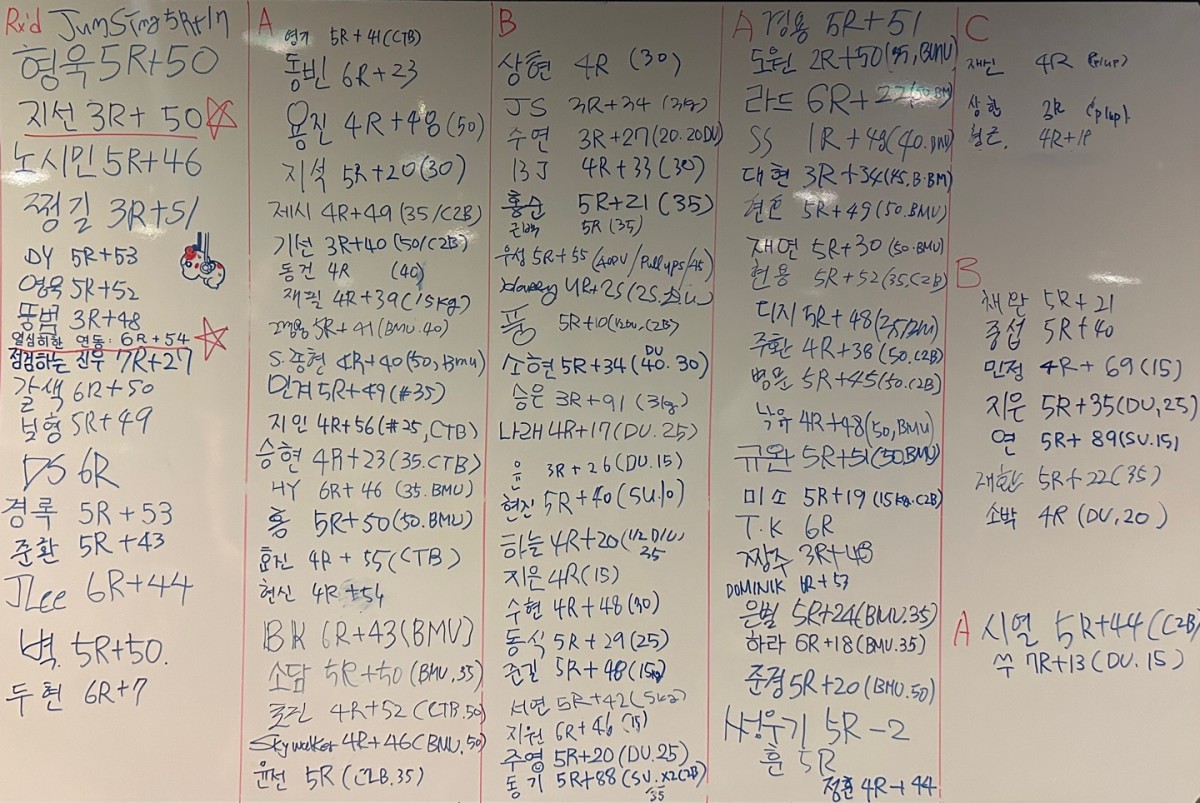 Rx'd JumSing 5R+17
형욱 5R+50
지선 3R+50
노시민 5R+46
찡길 3R+51
DY 5R+53
영욱 5R+52
동범 3R+48
열심히한 연동: 6R+54
점검하는 진우 7R+27
갈색 6R+50
보형 5R+49
DS 6R
경록 5R+53
준환 5R+43
JLee 6R+44
벽. 5R+50.
두현 6R+7
A
영기 5R+41(CTB)
동빈 6R+23
용진 4R+48(50)
지석 5R+20(30)
제시 4R+49(35/C2B)
기선 3R+40(50/C2B)
동건 4R (40)
재필 4R+39(15kg)
5R+41(BMU.40)
S.종현 4R+40(50, Bmu)
민겨 5R+49(#35)
지인 4R+56(#25,CTB)
승현 4R+23(35.CTB)
HY 6R+46 (35.BMU)
홍 5R+50(50.BMU)
효진 4R+55(CTB)
현신 4R+54
BK 6R+43(BMU)
소담 5R+50(BMU,35)
4R+52(CTB.50)
Skywalker 4R+46(BMU.50)
윤선 5R(C2B.35)
B
상현 4R (30)
JS 3R+34 (31g)
수연 3R+27(20.20DU)
BJ 4R+33(30)
홍순 5R+21(35)
근백 5R(35)
우성 5R+55 (40DU/Pullups/45)
4R+25
풍 5R+10
소현 5R+34(40.30)
DU
승은 3R+91
나래 4R+17(DU.25)
윤 3R+26(DU.15)
현진 5R+40(SU.10)
하늘 4R+20(1/2 DU)
35
지은 4R(15)
수현 4R+48(30)
동식 5R+29(25)
준길 5R+48(15kg)
서연 5R+42(5kg)
지원 6R+46(15)
주영 5R+20(DU.25)
동기 5R+88(SU.x2C2B)
35
A 경용 5R+51
도원 2R+50
라드 6R+22(50.BM)
SS 1R+49
대현 3R+34(45,B.BM)
5R+49(50.BMU)
재연 5R+30(50.BMU)
현용 5R+52(35.C2B)
디지 5R+48
주환 4R+38(50.C2B)
병문 5R+45(50.C2B)
낙유 4R+48(50,BMU)
규완 5R+51(50BMU)
미소 5R+19(15kg.C2B)
T.K 6R
짱주 3R+48
DOMINIK
은별 5R+24(BMU.35)
하라 6R+18(BMU.35)
준경 5R+20(BMU.50)
서영욱기 5R-2
훈 5R
정훈 4R+44
C
재신 4R
상한 3R (plup)
형근. 4R+18
B
채만 5R+21
종섭 5R+40
민정 4R+69(15)
지은 5R+35(DU,25)
연 5R+89(SU.15)
재환 5R+22(35)
소박 4R (DU,20)
A 시열 5R+44(C2B)
쑤 7R+13(DU.15)